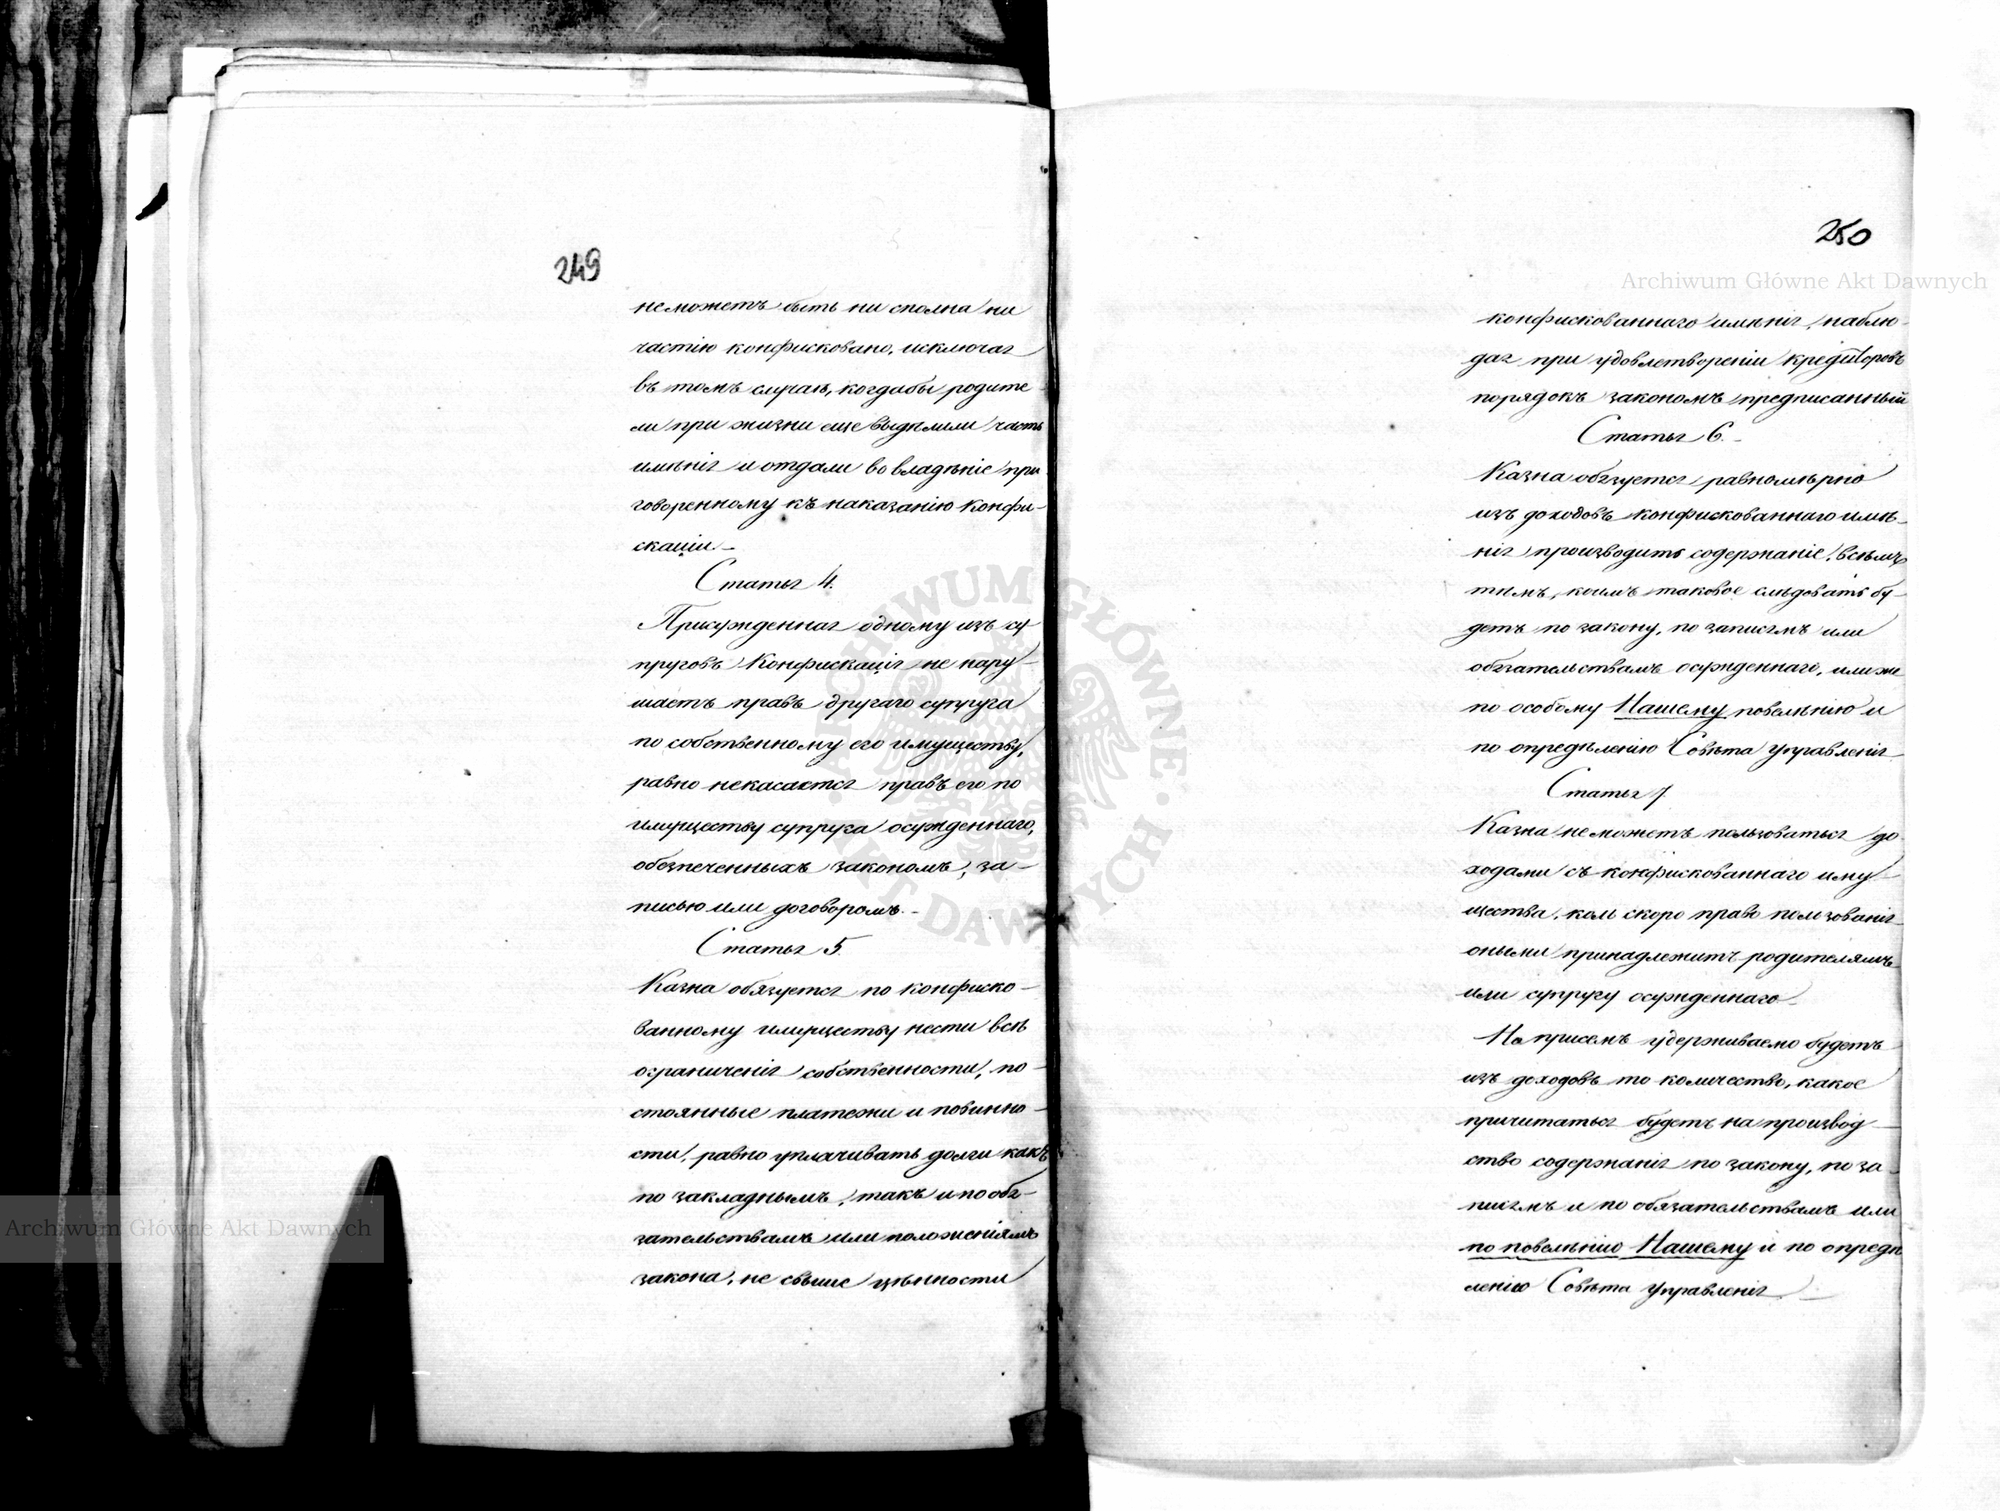 249
не можетъ быть ни сполна ни
частію конфисковано, исключая
въ томъ случаѣ, когдабы родите
ли при жизни еще выдѣлили часть
имѣнія и отдали во владѣніе при
говоренному къ наказанію конфи-
скаціи.-
Статья 4.
Присужденная одному изъ су
пруговъ Конфискація не нару-
шаетъ правъ другаго супруга
по собственному его имуществу,
равно некасается правъ его по
имуществу супруга осужденнаго,
обезпеченныхъ закономъ, за-
писью или договоромъ.-
Статья 5.
Казна обязуется по конфиско-
ванному имуществу нести всѣ
ограниченія собственности, по-
стоянные платежи и повинно-
сти, равно уплачивать долги какъ
по закладнымъ, такъ и по обя-
зательствамъ или положеніямъ
закона, не свыше цѣнности
250
конфискованнаго имѣнія, наблю-
дая при удовлетвореніи кредиторовъ
порядокъ закономъ предписанный
Статья 6.-
Казна обязуется равномѣрно
изъ доходовъ конфискованнаго имѣ-
нія производить содержаніе всѣмъ
тѣмъ, коимъ таковое слѣдовать бу-
детъ по закону, по записямъ или
обязательствамъ осужденнаго, или же
по особому Нашему повелѣнію и
по опредѣленію Совѣта Управленія
Статья 7
Казна не можетъ пользоваться до
ходами съ конфискованнаго иму-
щества, коль скоро право пользованія
оными принадлежитъ родителямъ
или супругу осужденнаго-
Но присемъ удерживаемо будетъ
изъ доходовъ то количество, какое
причитаться будетъ на производ-
ство содержанія по закону, по за-
писямъ и по обязательствамъ или
по повелѣнію Нашему и по опредѣ
ленію Совѣта Управленія.-
Archiwum Główne Akt Dawnych
Archiwum Główne Akt Dawnych
ARCHIWUM GŁÓWNE AKT DAWNYCH